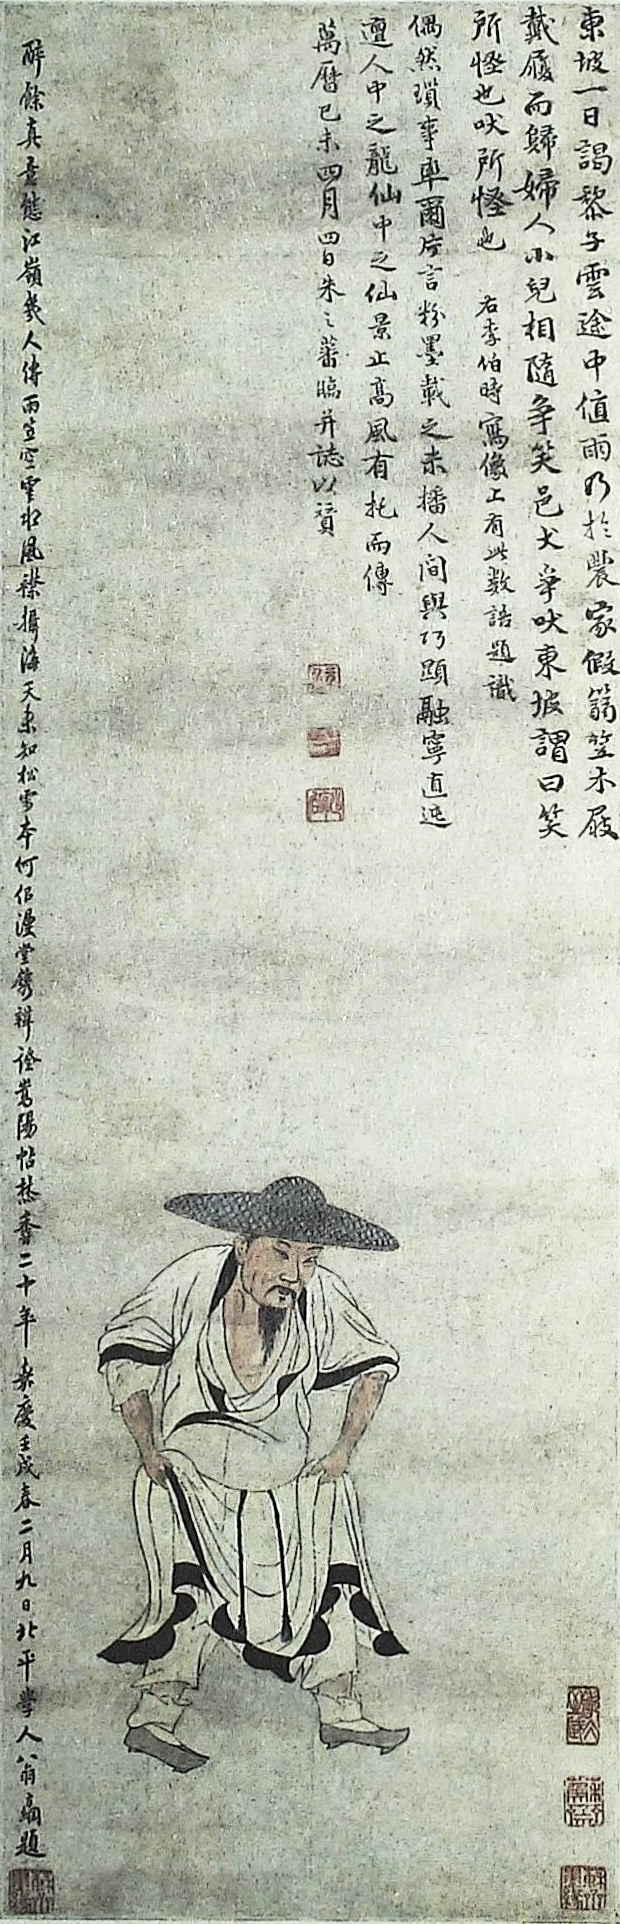 東坡一日謁黎子雲途中值雨乃於農家假篛笠木屐
戴履而歸婦人小兒相隨爭笑邑犬爭吠東坡謂曰笑
所怪也吠所怪也 右李伯時寫像上有此數語題識
偶然瑣事率爾片言粉墨載之未播人間與巧顕融寧直迍
邅人中之龍仙中之仙景止高風有托而傳
萬曆己未四月四日朱之蕃臨并誌以贊
醉餘真意態江嶺幾人傳雨笠空雲水風襟攝海天未知松雪本何似漫堂鐫辯證嵩陽帖爇香二十年 嘉慶壬戌春二月九日北平學人翁方綱題